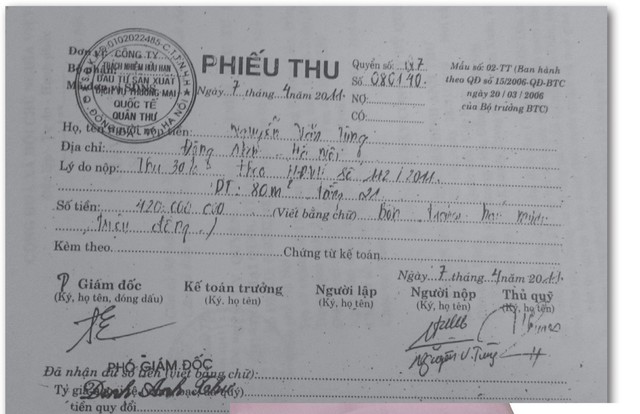 C.T.T.N.H.H
CÔNG TY
TRÁCH NHIỆM HỮU HẠN
ĐẦU TƯ SẢN XUẤT
THƯƠNG MẠI
QUỐC TẾ
QUÂN THƯ
PHIẾU THU
Quyển số:
Số 080140
NỢ:
CÓ:
Mẫu số: 02-TT (Ban hành
theo QĐ số 15/2006-QĐ-BTC
ngày 20 / 03 / 2006
của Bộ trưởng BTC)
Ngày 7 tháng 4 năm 2011
Họ, tên người nộp tiền: Nguyễn Văn Tùng
Địa chỉ: Đông Anh - Hà Nội
Lý do nộp: Thu 30% theo số 112/2011
DT: 80m² tầng 21
Số tiền: 420.000.000 (Viết bằng chữ) Bốn trăm hai mươi
triệu đồng./
Kèm theo Chứng từ kế toán
Ngày 7 tháng 4 năm 2011
Giám đốc Kế toán trưởng Người lập Người nộp Thủ quỹ
(Ký, họ tên, đóng dấu) (Ký, họ tên) (Ký, họ tên) (Ký, họ tên) (Ký, họ tên)
Nguyễn V. Tùng
PHÓ GIÁM ĐỐC
Đã nhận đủ số tiền (viết bằng chữ):
Tỷ giá
tiền quy đổi